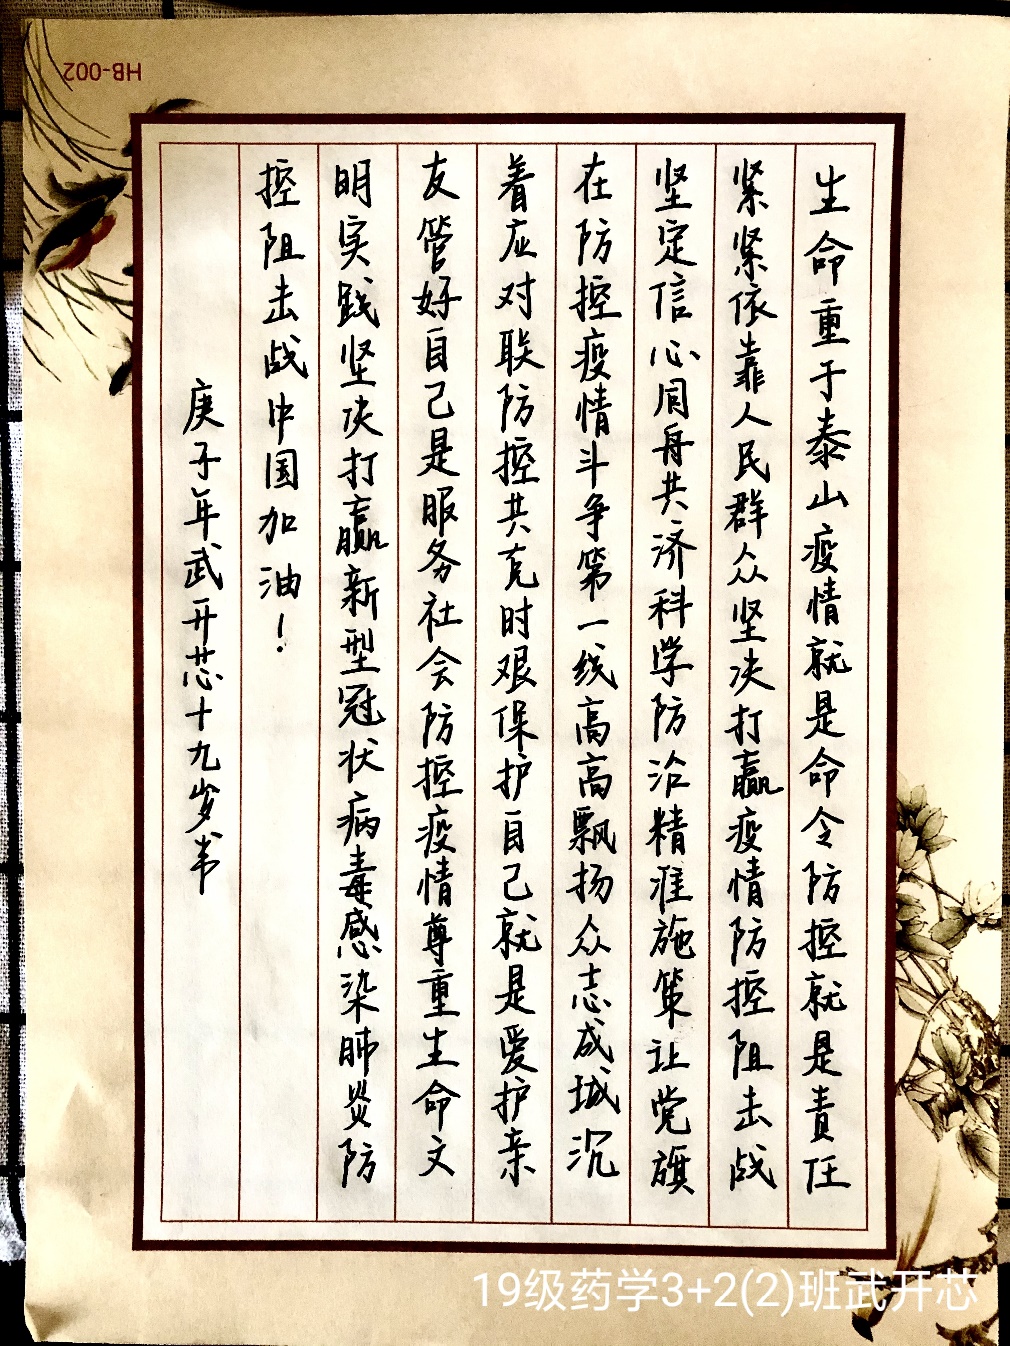 HB-002
生命重于泰山疫情就是命令防控就是责任
紧紧依靠人民群众坚决打赢疫情防控阻击战
坚定信心同舟共济科学防治精准施策让党旗
在防控疫情斗争第一线高高飘扬众志成城沉
着应对联防控共克时艰保护自己就是爱护亲
友管好自己是服务社会防控疫情尊重生命文
明实践坚决打赢新型冠状病毒感染肺炎防
控阻击战中国加油！
庚子年武开芯十九岁书
19级药学3+2(2)班武开芯